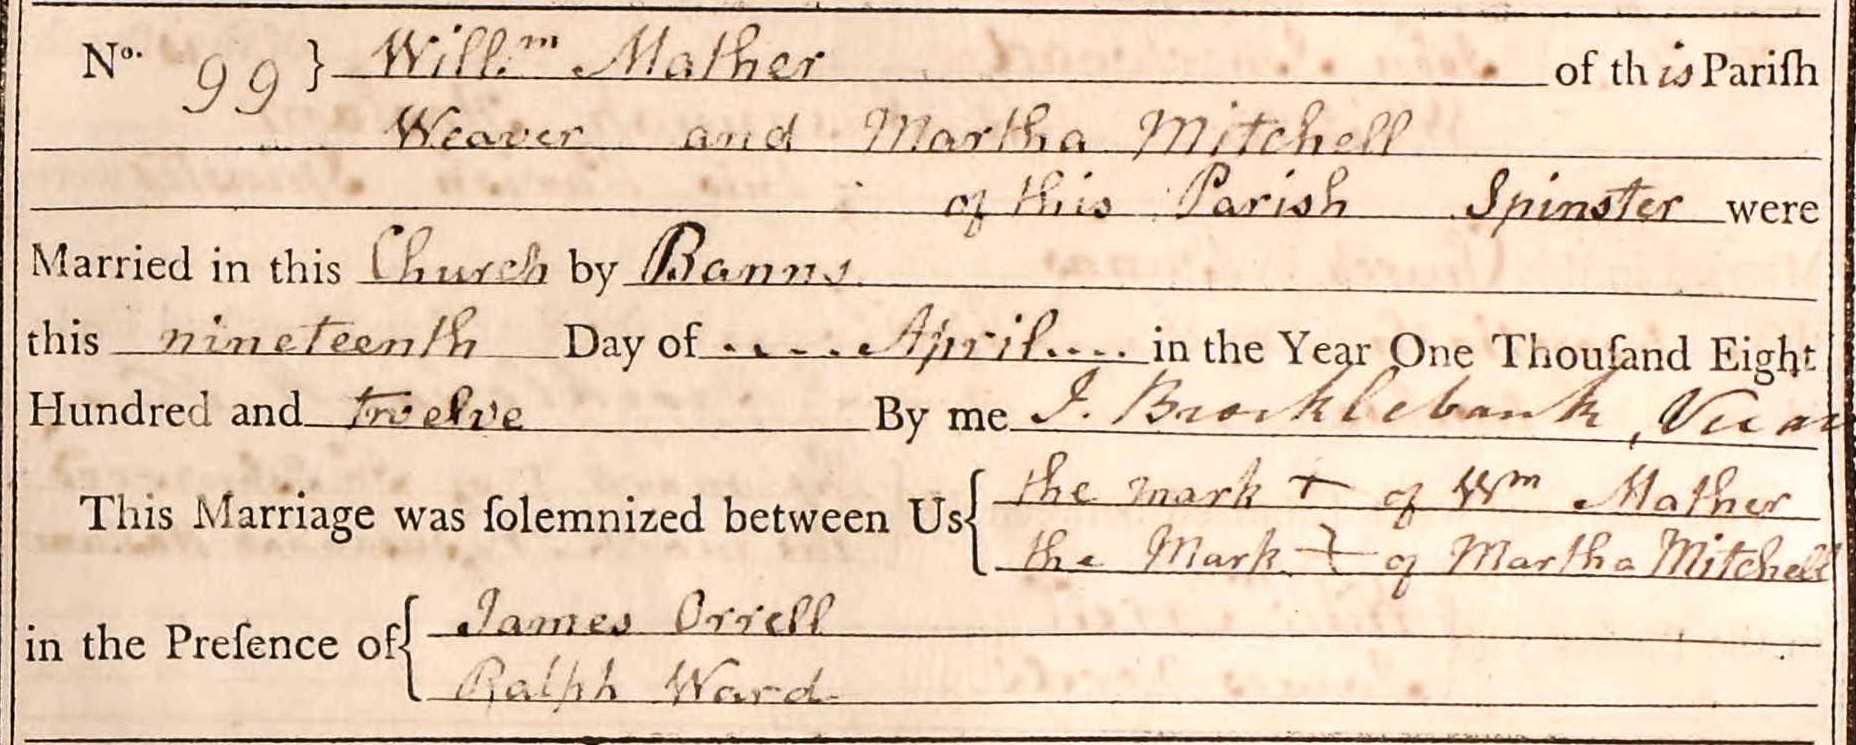 No. 99} Will.m Mather of this Pariſh
Weaver and Martha Mitchell
of this Parish Spinster were
Married in this Church by Banns
this nineteenth Day of .... April.... in the Year One Thouſand Eight
Hundred and twelve By me J. Brocklebank, Vicar
This Marriage was ſolemnized between Us { the mark + of Wm Mather
the Mark + of Martha Mitchell
in the Preſence of { James Orrell
Ralph Ward